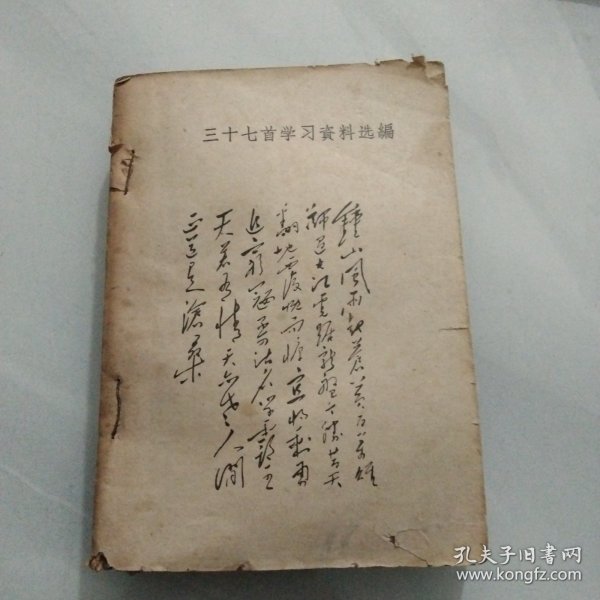 三十七首学习資料选編
鍾山風雨起蒼黃百萬雄
師過大江虎踞龍盤今勝昔天
翻地覆慨而慷宜將剩勇
追窮寇不可沽名學霸王
天若有情天亦老人間
正道是滄桑
孔夫子旧书网
www.kongfz.com